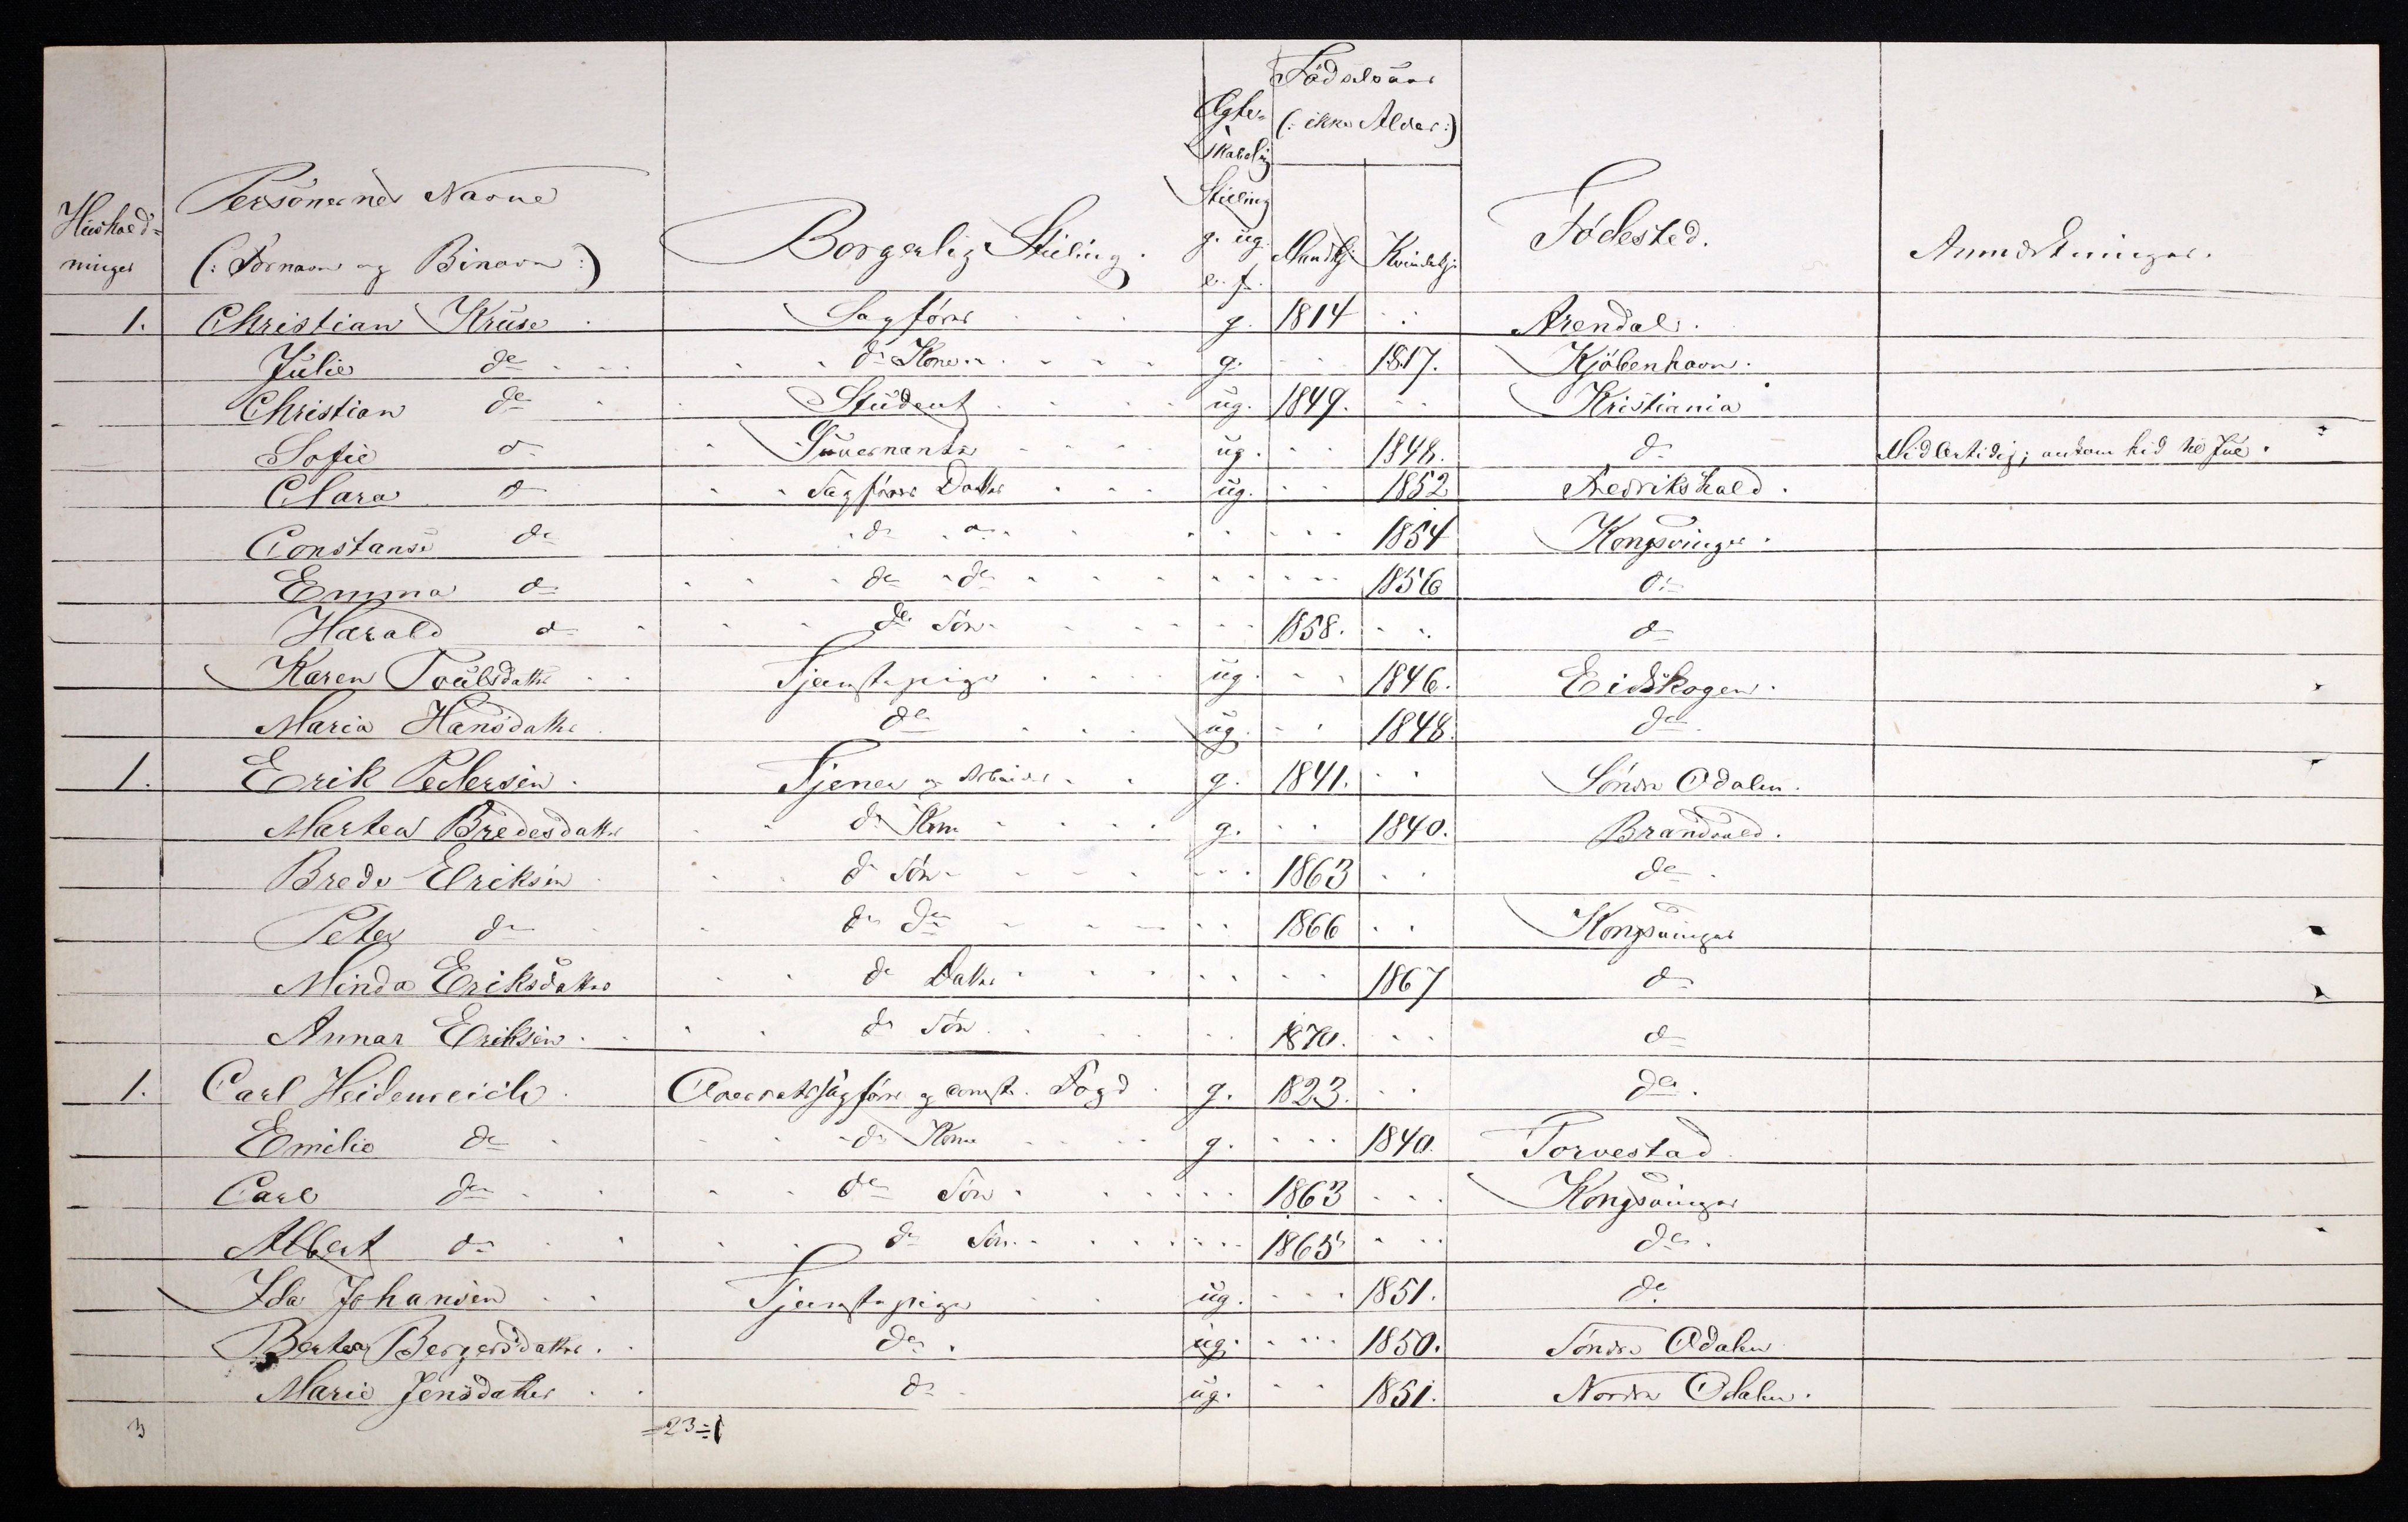 Hushold-
ninger
Personernes Navne
(: Fornavn og Binavn :)
Borgerlig Stilling.
Ægte-
skabelig
Stilling
g. ug.
e. f.
Fødselsaar
(: ikke Alder :)
Mandkj. Kvindekj.
Fødested.
Anmærkninger.
1. Christian Kruse Sagfører g. 1814 Arendal.
Julie do do Kone g. 1817. Kjöbenhavn.
Christian do Student ug. 1849. Kristiania
Sofie do Guvernante ug. 1848. do Midlertidig; ankom hid til Jul.
Clara do Sagførers Datter ug. 1852 Fredrikshald.
Constanse do do do 1854 Kongsvinger.
Emma do do do 1856 do
Harald do do Søn 1858. do
Karen Poulsdatter Tjenestepige ug. 1846. Eidskogen.
Maria Hansdatter do ug. 1848. do
1. Erik Pedersen Tjener og Arbeider g. 1841. Søndre Odalen.
Martea Bredesdatter do Kone g. 1840. Brandvald.
Brede Eriksen do Søn 1863 do
Peter do do do 1866 Kongsvinger
Minda Eriksdatter do Datter 1867 do
Annar Eriksen do Søn 1870. do
1. Carl Heidenreich Overretssagfører og const. Fogd g. 1823. do
Emilie do do Kone g. 1840. Torvestad
Carl do do Søn 1863 Kongsvinger
Albert do do Søn 1865 do
Ida Johansen Tjenestepige ug. 1851. do
Bertea Bergersdatter do ug. 1850. Søndre Odalen
Marie Jensdatter do ug. 1851. Nordre Odalen.
3 =23÷1